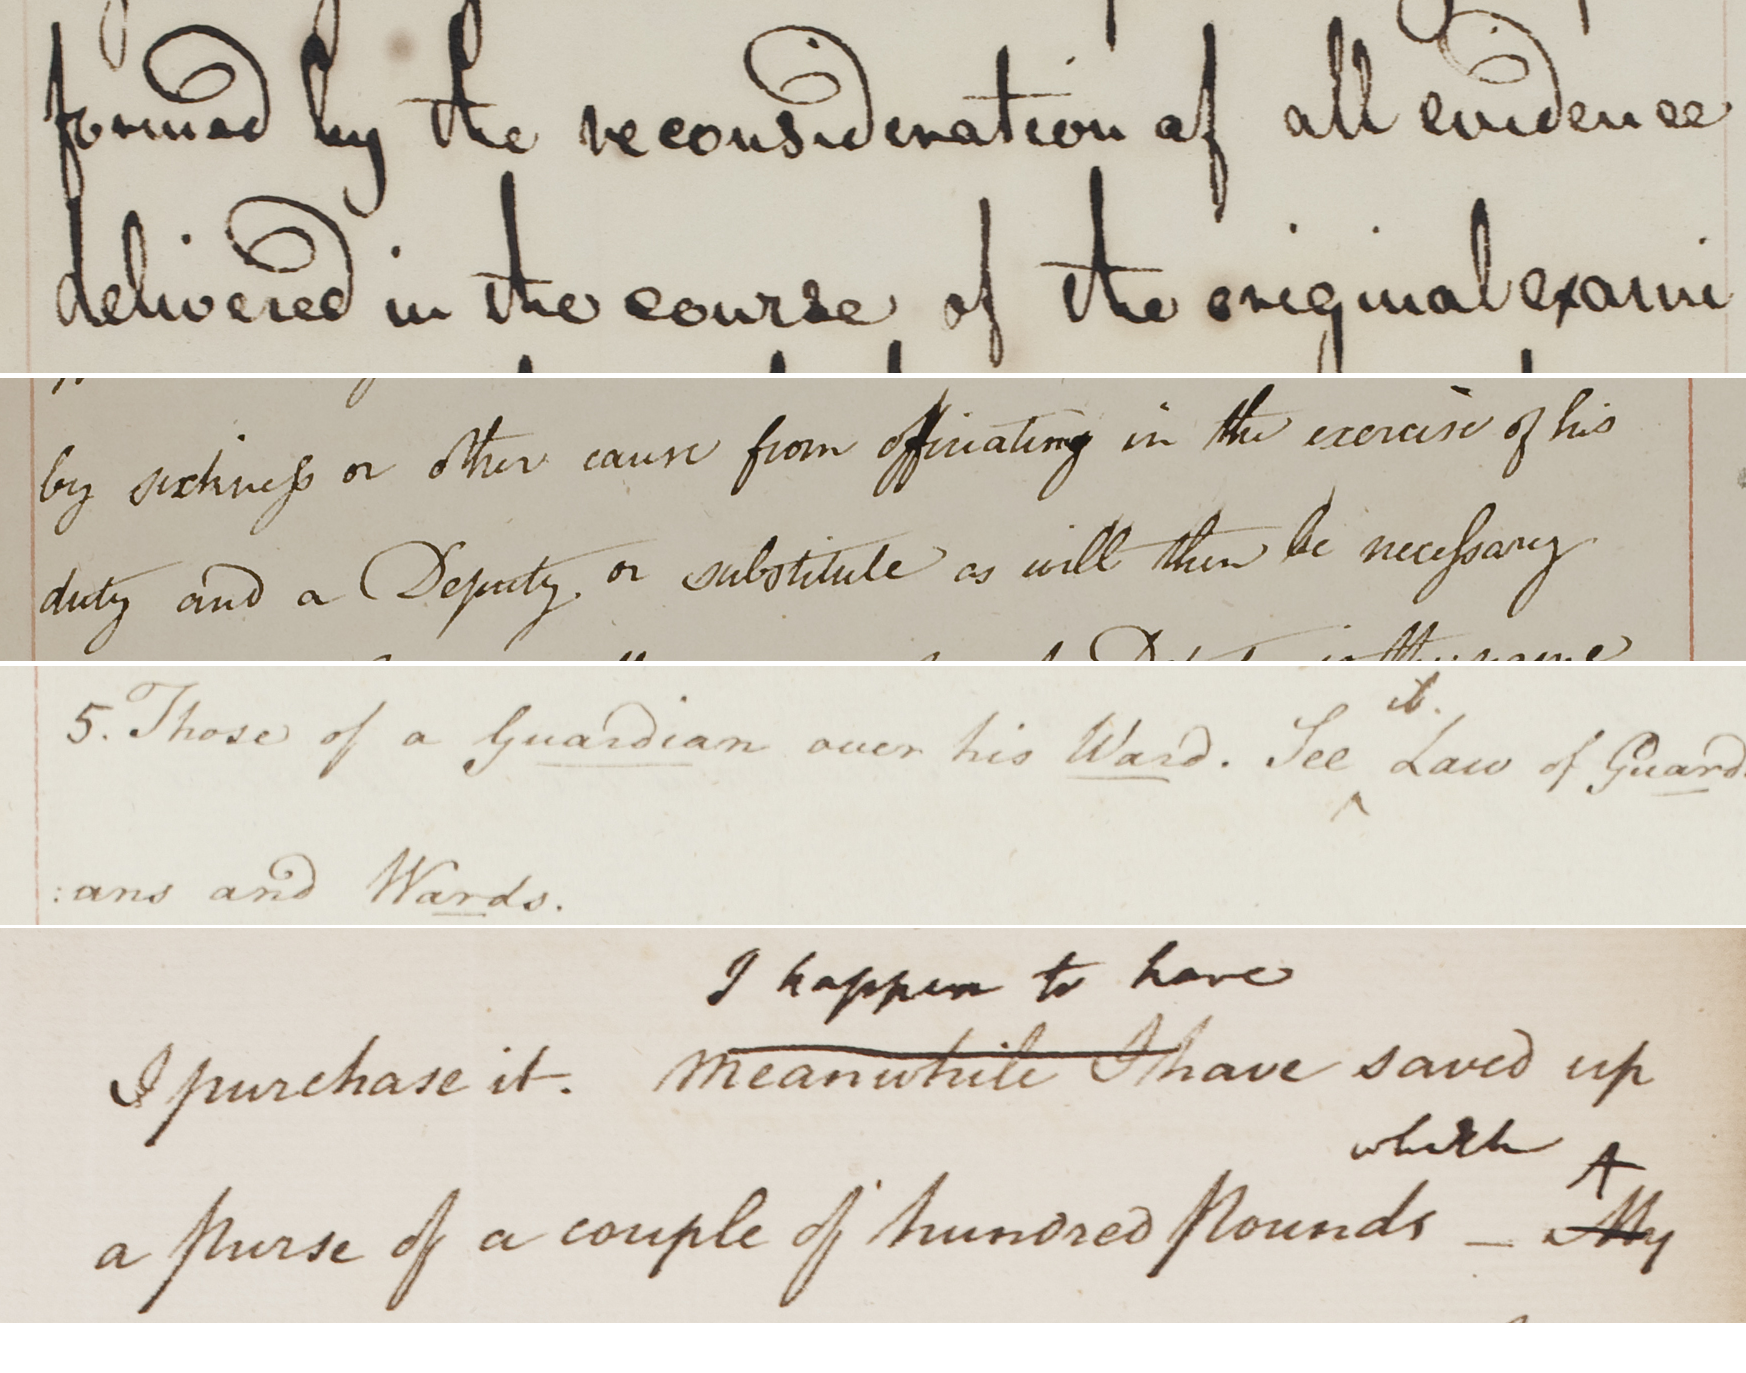 formed by the reconsideration of all evidence
delivered in the course of the original exami
by sickness or other cause from officiating in the exercise of his
duty and a Deputy or substitute as will then be necessary
it.
5. Those of a Guardian over his Ward. See ^ Law of Guard.
:ans and Wards.
I happen to have
I purchase it. Meanwhile I have saved up
which
a purse of a couple of hundred Pounds — My